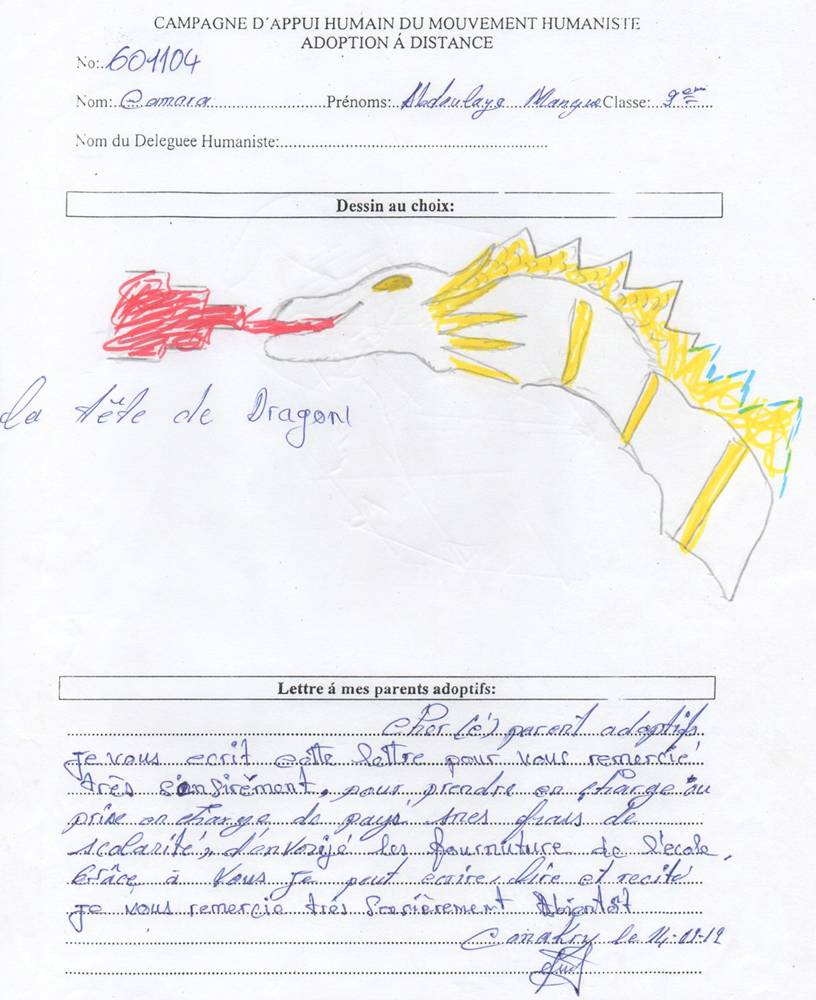 CAMPAGNE D'APPUI HUMAIN DU MOUVEMENT HUMANISTE
ADOPTION Á DISTANCE
No: 601104
Nom: Camara Prénoms: Abdoulaye Mangue Classe: 9em
Nom du Deleguee Humaniste:
Dessin au choix:
la tête de Dragon
Lettre á mes parents adoptifs:
Cher (e) parent adoptifs
je vous ecrit cette lettre pour vous remercié
très sensirèment, pour prendre en charge ou
prise en charge de payé mes frais de
scolarité, d'envoyé les fourniture de l'école,
Grâce à Vous je peut écrire, lire et recité
je vous remercie très sensièrement Abientôt
Conakry le 14-01-12